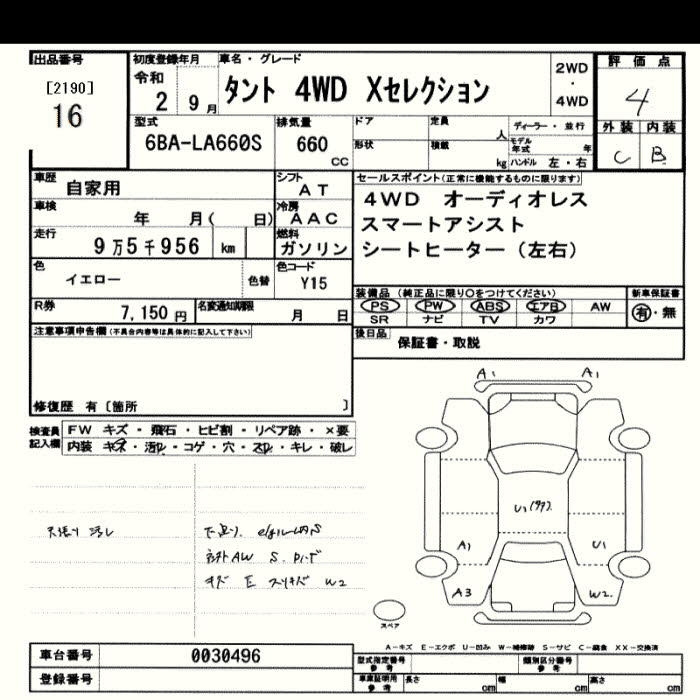 出品番号
[2190]
16
初度登録年月
令和
2 9月
車名・グレード
タント 4WD Xセレクション
2WD
・
4WD
評価点
4
外装 内装
C B
型式
6BA-LA660S
排気量
660
cc
ドア
形状
定員
人
積載
kg
ディーラー・並行
モデル年式 年
ハンドル 左・右
車歴
自家用
シフト
AT
車検
年 月( 日)
冷房
AAC
走行
9万5千956 km
燃料
ガソリン
色
イエロー
色替
色コード
Y15
R券
7,150円
名変通知期限
月 日
セールスポイント(正常に機能するものに限ります)
4WD オーディオレス
スマートアシスト
シートヒーター(左右)
装備品 (純正品に限り○をつけてください)
PS PW ABS エアB AW
SR ナビ TV カワ
新車保証書
有・無
後日品
保証書・取説
注意事項申告欄(不具合内容等は具体的に記入して下さい)
修復歴 有〔箇所 〕
検査員
記入欄
FW キズ・飛石・ヒビ割・リペア跡・×要
内装 キズ・汚れ・コゲ・穴・スレ・キレ・破レ
A1 A1
A1 U1
A3 W2
スペア
A-キズ E-エクボ U-凹み W-補修跡 S-サビ C-腐食 XX-交換済
車台番号
0030496
登録番号
型式指定番号
参考
類別区分番号
参考
車庫証明用
参考
長さ cm
幅 cm
高さ cm